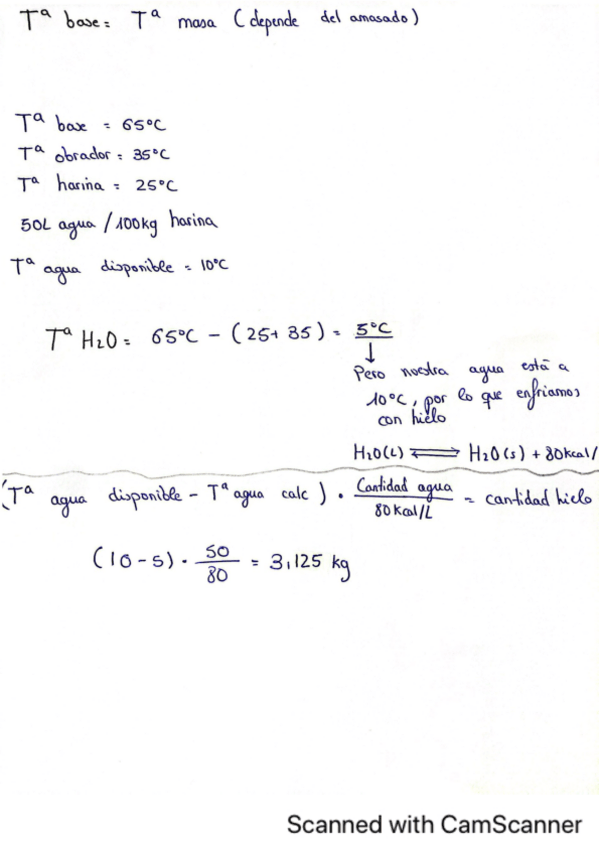 Tª base = Tª masa (depende del amasado)
Tª base = 65°C
Tª obrador = 35°C
Tª harina = 25°C
50L agua / 100kg harina
Tª agua disponible = 10°C
Tª H2O = 65°C - (25+35) = 5°C
↓
Pero nuestra agua está a
10°C, por lo que enfriamos
con hielo
H2O(L) ⇌ H2O(s) + 80kcal/
(Tª agua disponible - Tª agua calc) · Cantidad agua / 80 Kcal/L = cantidad hielo
(10-5) · 50/80 = 3,125 kg
Scanned with CamScanner